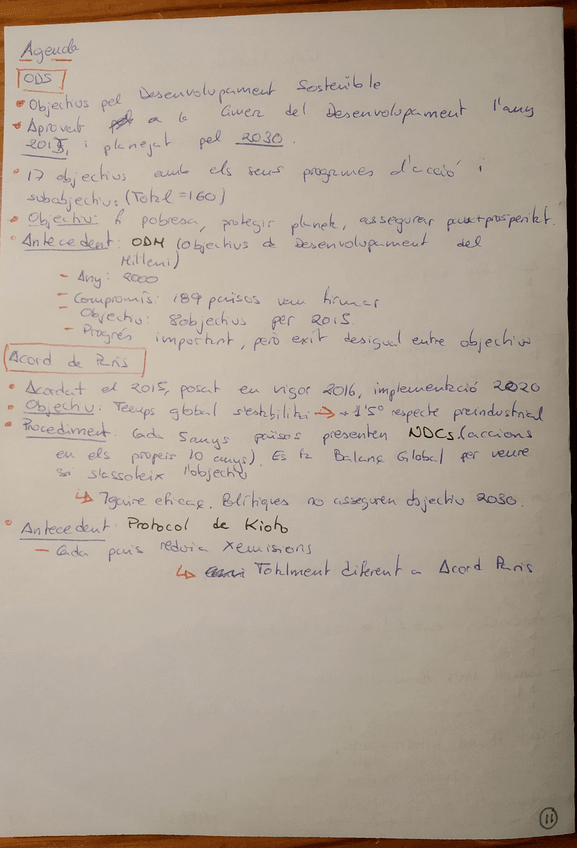 Agenda
ODS
• Objectius pel Desenvolupament Sostenible
• Aprovat a la Cimera del Desenvolupament l'any
2015, i planejat pel 2030.
• 17 objectius amb els seus programes d'acció i
subobjectius (Total = 160)
• Objectiu: ↓ pobresa, protegir planeta, assegurar pau+prosperitat.
• Antecedent: ODM (objectius de Desenvolupament del
Milleni)
- Any: 2000
- Compromís: 189 països van firmar
- Objectiu: 8 objectius per 2015.
- Progrés important, però èxit desigual entre objectius
Acord de París
• Acordat el 2015, posat en vigor 2016, implementació 2020
• Objectiu: Temps global s'estabilitzi → + 1'5° respecte preindustrial
• Procediment: Cada 5 anys països presenten NDCs (accions
en els propers 10 anys). Es fa Balanç Global per veure
si s'assoleix l'objectiu
↳ Gaire eficaç. Polítiques no asseguren objectiu 2030.
• Antecedent: Protocol de Kioto
- Cada país reduïa X emisions
↳ Totalment diferent a Acord París
11